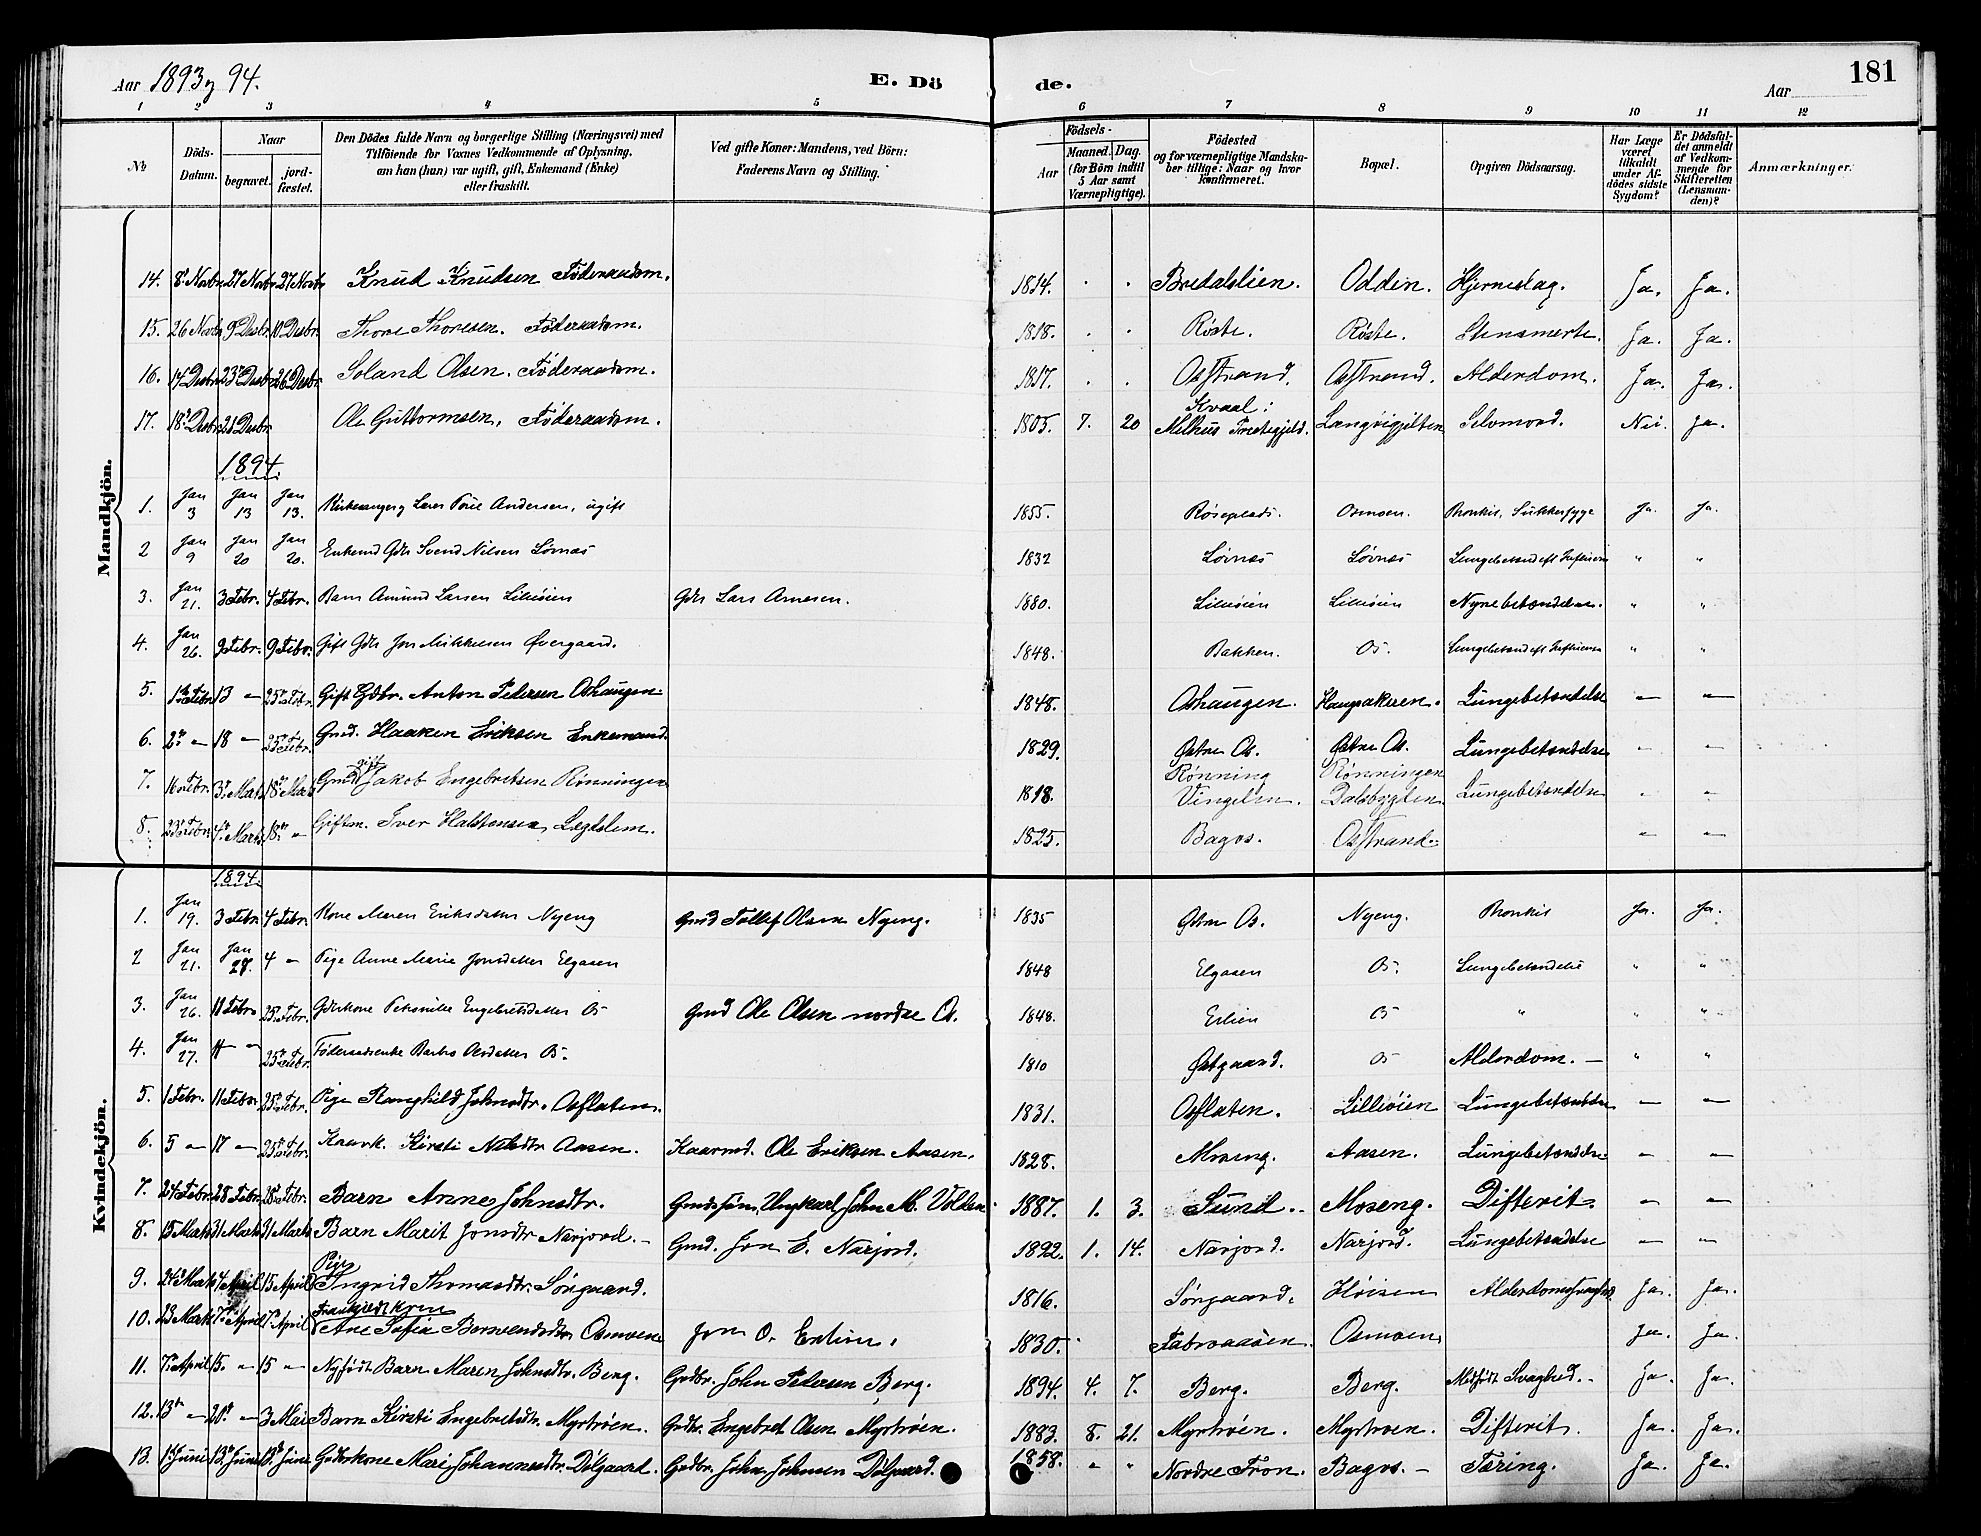 Aar 1893 og 94.
E. Dö
de.
Aar
181
1 2 3 4 5 6 7 8 9 10 11 12
No
Döds-Datum.
Naar
begravet.
jordfæstet.
Den Dödes fulde Navn og borgerlige Stilling (Næringsvei) med
Tilföiende for Voxnes Vedkommende af Oplysning,
om han (hun) var ugift, gift, Enkemand (Enke)
eller fraskilt.
Ved gifte Koner: Mandens, ved Börn:
Faderens Navn og Stilling.
Födsels-
Aar
Maaned. Dag.
(for Börn indtil 5 Aar samt Værnepligtige).
Födested
og for værnepligtige Mandskaber tillige: Naar og hvor konfirmeret.
Bopæl.
Opgiven Dödsaarsag.
Har Læge været tilkaldt under Afdödes sidste Sygdom?
Er Dödsfaldet anmeldt af Vedkommende for Skifteretten (Lensmanden)?
Anmærkninger.
Mandkjön.
14. 8 Novbr. 27 Novbr. 27 Novbr. Knud Knudsen Föderaadsm. 1814. Bredalslien. Odden. Hjerneslag. Ja. Ja.
15. 26 Novbr. 9 Desbr. 10 Desbr. Thore Thoresen. Föderaadsm. 1818. Røste. Røste. Stensmerte. Ja. Ja.
16. 14 Desbr. 23 Desbr. 26 Desbr. Soland Olsen. Föderaadsm. 1817. Osstrand. Osstrand. Alderdom. Ja. Ja.
17. 18 Desbr. 21 Desbr. Ole Guttormsen. Föderaadsm. 1805. 7. 20 Kvaal i Melhus Præstegjeld. Selvmord. Nei. Ja.
1894.
1. Jan 3 Jan 13 Jan 13. Kirkesanger og Lærer Andersen, ugift 1855. Osmoen. Bronkit, Sukkersyge Ja. Ja.
2 Jan 9 Jan 20 Jan 20. Enkemd Gdr Svend Nilsen Lövnæs 1832 Lövnæs Lövnæs " "
3. Jan 21. 3 Febr. 4 Febr. Barn Amund Larsen Lilleöien Gdr Lars Arnesen. 1880. Lilleöien Lilleöien Nyrebetændelse. " "
4. Jan 26. 9 Febr. 9 Febr. Gift Gdr Jon Mikkelsen Øvergaard. 1848. Bakken. Os. " "
5. 1 Febr. 13 - 25 Febr. Gift Gdbr. Anton Pedersen Oshaugen 1848. Oshaugen. Haugsakeren. Lungebetændelse - -
6. 2 - 18 - 25 Febr. Gmd. Haaken Eriksen Enkemand. 1829. Østre Os. Østre Os. Lungebetændelse - -
7. 16 Febr. 3 Marts 18 Marts Gmd gift Jakob Engebretsen Rønningen 1818. Rønning Vingelen. Rønningen Dalsbygden Lungebetændelse " "
8. 23 Febr. 4 Marts 18 - Giftm. Iver Halstensen Lægdslem. 1825. Bagos. Osstrand. - -
Kvindekjön.
1894.
1. Jan 19. 3 Febr. 4 Febr. Kone Maren Eriksdatter Nyeng Gmd Tollef Olsen Nyeng. 1835 Østre Os. Nyeng. Bronkit Ja. Ja.
2 Jan 21. Jan 28. 4 - Pige Anne Marie Jonsdatter Elgaaen 1848 Elgaaen Os. Lungebetændelse " "
3. Jan 26. 11 Febr. 25 Febr. Gdrkone Engebretsdatter Os Gmd Ole Olsen nordre Os. 1848. Erlien Os " " "
4. Jan 27. 11 - 25 Febr. Föderaadsenke Olsdatter Os. 1810 Østgaard. Os Alderdom. - " "
5. 1 Febr. 11 Febr. 25 Febr. Pige Ranghild Johnsdtr. Osflaten. 1831. Osflaten. Lilleöien Lungebetændelse - -
6. 5 - 17 - 25 Febr. Kaark. Kirsti Nilsdtr Aasen. Kaarmd. Ole Eriksen Aasen. 1828. Moseng. Aasen. Lungebetændelse - -
7. 24 Febr. 28 Febr. 28 Febr. Barn Anne Johnsdtr. Ungkarl John M. Volden 1887. 1. 3. Sund. Moseng. Difterit. - -
8. 15 Marts 31 Marts 31 Marts Barn Marit Jonsdtr Narjord. - Gmd. Jon E. Narjord. 1892. 1. 14. Narjord. Narjord. Lungebetændelse - -
9. 24 Marts 4 April 15 April Pige Ingrid Thomasdtr. Sörgaard. 1816. Sörgaard. Höisen Ja. Ja.
10. 23 Marts 7 April 7 April Fraskildt Kone Ane Sofia Berventsdtr Osmoen Jon O. Erlien. 1830. Osmoen Ja. Ja.
11. 7 April 15. - 15 - Nyfödt Barn Maren Johnsdtr. Berg. Grdbr. John Pedersen Berg. 1894. 4. 7. Berg. Berg. Medfödt Svaghed. - Ja. Ja.
12. 13 - 20 - 3 Mai Barn Kirsti Engebretsdtr. Myrtröen. Grdbr. Engebret Olsen Myrtröen. 1883. 8. 21. Myrtröen. Myrtroen. Difterit. Ja. Ja.
13. 1 Juni 13 Juni 13 Juni Gaardkone Mari Johannesdtr. Dölgaard. Grdbr. John Johnsen Dölgaard. 1858. " " Nordre Fron. Bagos. - Tæring. Ja. Ja.